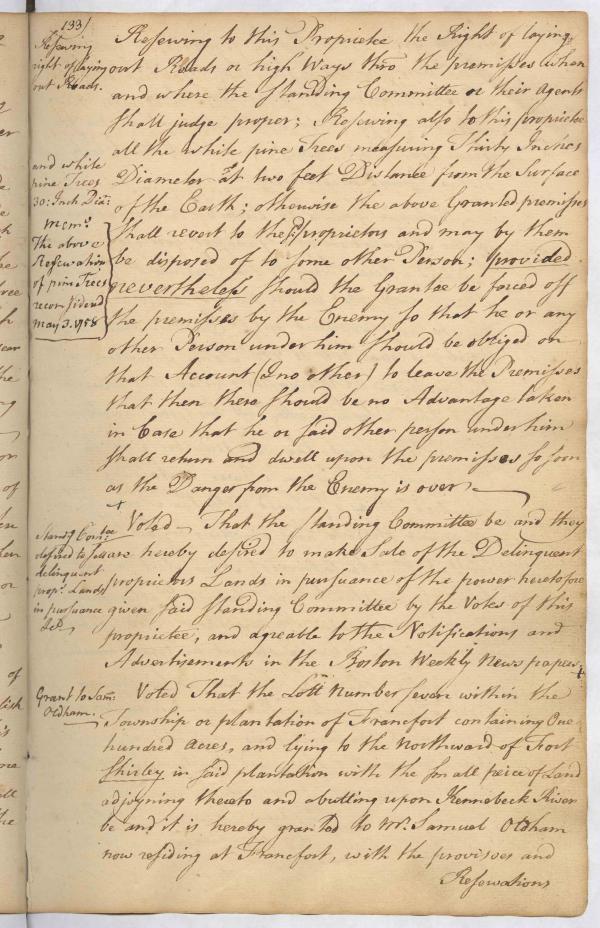 133/
Reserving
right of laying
out Roads.
Reserving to this Proprietee the Right of laying
out Roads or high Ways thro the premisses when
and where the Standing Committee or their Agents
shall judge proper; Reserving also to this proprietee
all the white pine Trees measuring Thirty Inches
Diameter at two feet Distance from the Surface
of the Earth; otherwise the above Granted premisses
shall revert to the Proprietors and may by them
be disposed of to some other Person; provided
nevertheless should the Grantee be forced off
the premisses by the Enemy so that he or any
other Person under him should be obliged on
that Account (& no other) to leave the Premisses
that then there should be no Advantage taken
in Case that he or said other person under him
shall return and dwell upon the premisses so soon
as the Danger from the Enemy is over
and white
pine Trees
30: Inch Dia:
Memo.
The above
Reservation
of pine Trees
reconsidered
May 3. 1758
Standg Comtee
desired to sell
delinquent
propr. Lands
in pursuance
&c
Voted That the standing Committee be and they
are hereby desired to make Sale of the Delinquent
proprietors Lands in pursuance of the power heretofore
given said standing Committee by the Votes of this
proprietee, and agreable to the Notifications and
Advertisements in the Boston Weekly News paper
Grant to Sam:
Oldham.
Voted That the Lott Number seven within the
Township or plantation of Francfort containing One
hundred Acres, and lying to the Northward of Fort
Shirley in said plantation with the small peice of Land
adjoyning thereto and abutting upon Kennebeck River
be and it is hereby granted to Mr. Samuel Oldham
now residing at Francfort, with the provisoes and
Reservations